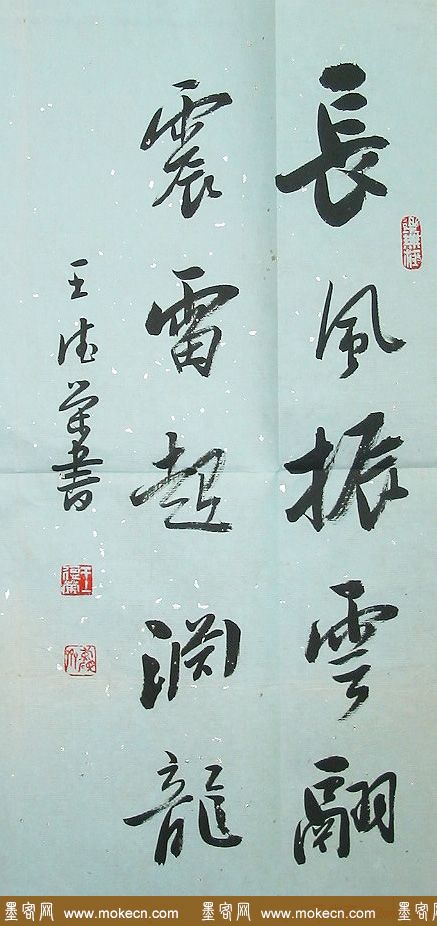 長風振雲翮
震雷起淵龍
王德榮書
墨客网 www.mokecn.com 墨客网 www.mokecn.com